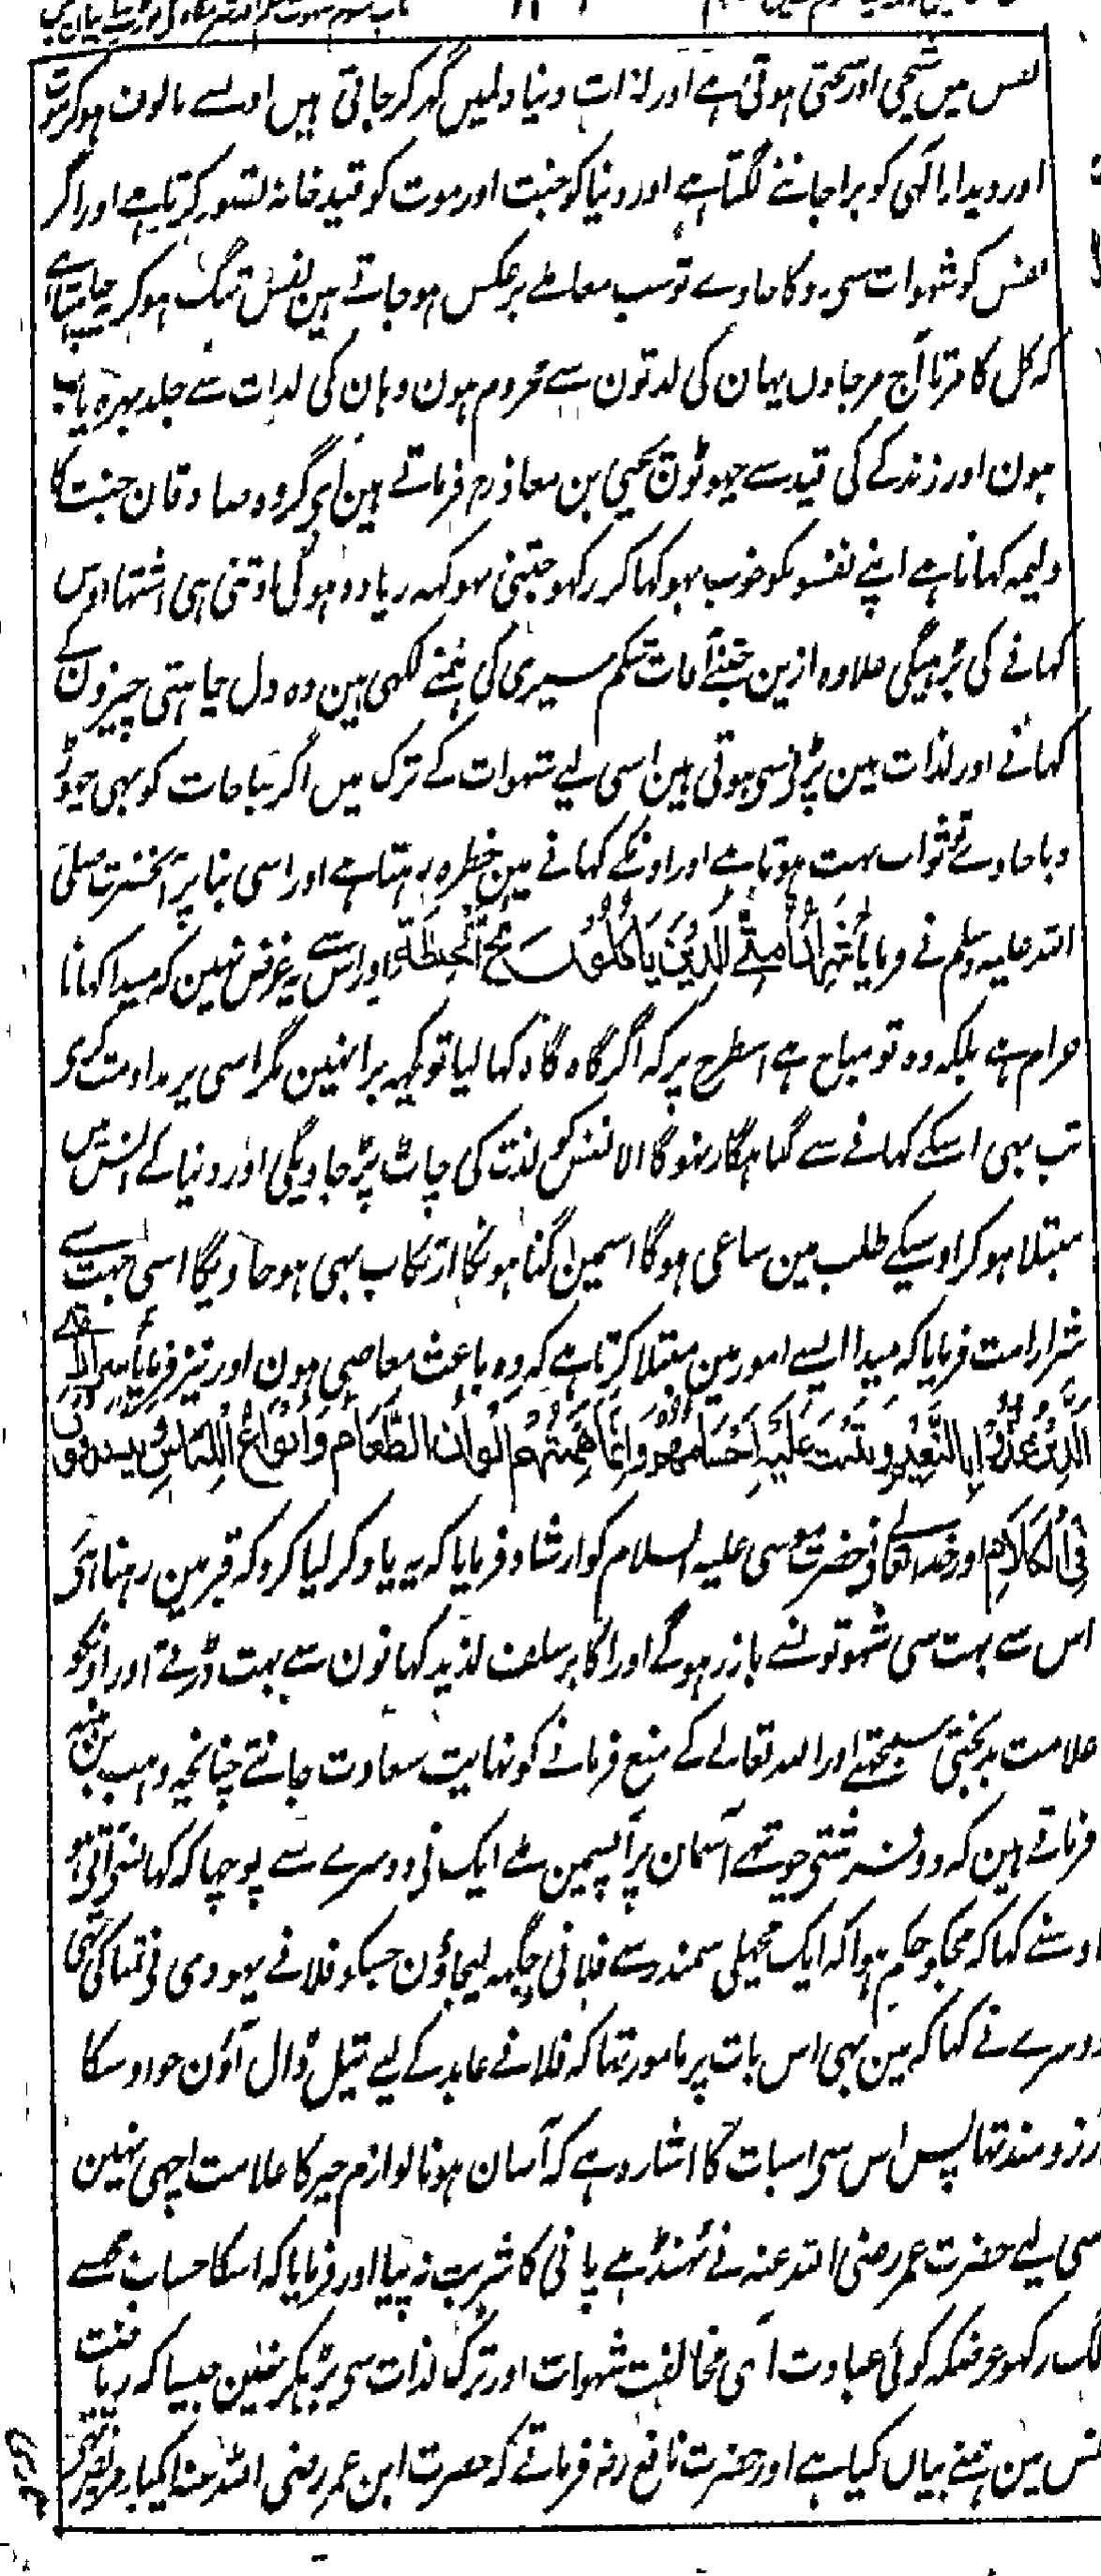 نفس میں شیخی اور سختی ہوتی ہے اور لذات دنیا دلمیں گہر کر جاتی ہیں اوسے مالوف ہو کر موت
اور دیدار الٰہی کو برا جاننے لگتا ہے اور دنیا کو جنت اور موت کو قید خانہ تصور کرتا ہے اور اگر
نفس کو شہوات سی روکا جاوے تو سب معاملے برعکس ہو جاتے ہین نفس تنگ ہو کر چاہتا ہے
کہ کل کا مرتا آج مر جاوں یہان کی لذتون سے محروم ہون وہان کی لذات سے جلد بہرہ یاب
ہون اور زندگے کی قید سے چہوٹون یحیی بن معاذ رح فرماتے ہین ای گروہ صادقان جنت کا
ولیمہ کہانا ہے اپنے نفسو نکو خوب بہوکہا کر رکہو جتنی بہوکہہ زیادہ ہوگی اوتنی ہی اشتہا اوس
کہانے کی بڑہیگی علاوہ ازین جتنے آفات شکم سیری کی ہمنے لکہی ہین وہ دل چاہتی چیزون کے
کہانے اور لذات مین پڑنی سی ہوتی ہین اسی لیے شہوات کے ترک میں اگر مباحات کو بہی چہوڑ
دیا جاوے تو ثواب بہت ہوتا ہے اور اونکے کہانے مین خطرہ رہتا ہے اور اسی بنا پر آنحضرت صلی
اللہ علیہ وسلم نے فرمایا شرار امتی الذین یاکلون مخ الحنطۃ اور اس سے یہ غرض نہین کہ میدا کہانا
حرام ہے بلکہ وہ تو مباح ہے اسطرح پر کہ اگر گاہ گاہ کہا لیا تو کچہہ برا نہین مگر اسی پر مداومت کرو
تب بہی اسکے کہانے سے گناہگار نہوگا الا نفس کو لذت کی چاٹ پڑ جاویگی اور دنیا کے انس میں
مبتلا ہو کر اوسیکے طلب مین ساعی ہوگا اسمین گناہونکا ارتکاب بہی ہو جاویگا اسی جہت سے
شرار امت فرمایا کہ میدا ایسے امور مین مبتلا کرتا ہے کہ وہ باعث معاصی ہون اور نیز فرمایا شرار امتی
الَّذِیْنَ غُذُّوْا بِالنَّعِیْمِ وَنَبَتَتْ عَلَیْہِ اَجْسَامُهُمْ وَاِنَّمَا هِمَّتُهُمْ اَلْوَانُ الطَّعَامِ وَاَنْوَاعُ اللِّبَاسِ وَیَتَشَدَّقُوْنَ
فِی الْکَلَامِ اور خدا تعالے نی حضرت موسی علیہ السلام کو ارشاد فرمایا کہ یہ یاد کر لیا کرو کہ قبر مین رہنا ہی
اس سے بہت سی شہوتوں سے باز رہوگے اور اکابر سلف لذیذ کہانون سے بہت ڈرتے اور اونکو
علامت بدبختی سمجہتے اور اللہ تعالے کے منع فرمانے کو نہایت سعادت جانتے چنانچہ وہب بن منبہ
فرماتے ہین کہ دو فرشتی چوتہے آسمان پر آپسمین ملے ایک نی دوسرے سے پوچہا کہ کہانسے آتی ہو
اوسنے کہا کہ مجکو حکم ہوا کہ ایک مچہلی سمندر سے فلانی جگہہ لیجاؤن جسکو فلانے یہودی نی تمنا کی تہی
دوسرے نے کہا کہ مین بہی اس بات پر مامور تہا کہ فلانے عابد کے لیے تیل ڈال آؤن جو اوسکا
رزومند تہا پس اس سی اسبات کا اشارہ ہے کہ آسان ہونا لوازم خیر کا علامت اچہی نہین
سی لیے حضرت عمر رضی اللہ عنہ نے ٹہنڈے پانی کا شربت نہ پیا اور فرمایا کہ اسکا حساب مجہسے
لگ رکہو غرضکہ کوئی عبادت آہی مخالفت شہوات اور ترک لذات سی بڑہکر نہین جیسا کہ ریاضت
نفس مین ہمنے بیاں کیا ہے اور حضرت نافع رض فرماتے کہ حضرت ابن عمر رضی اللہ عنہ ایکبار مریض تہے